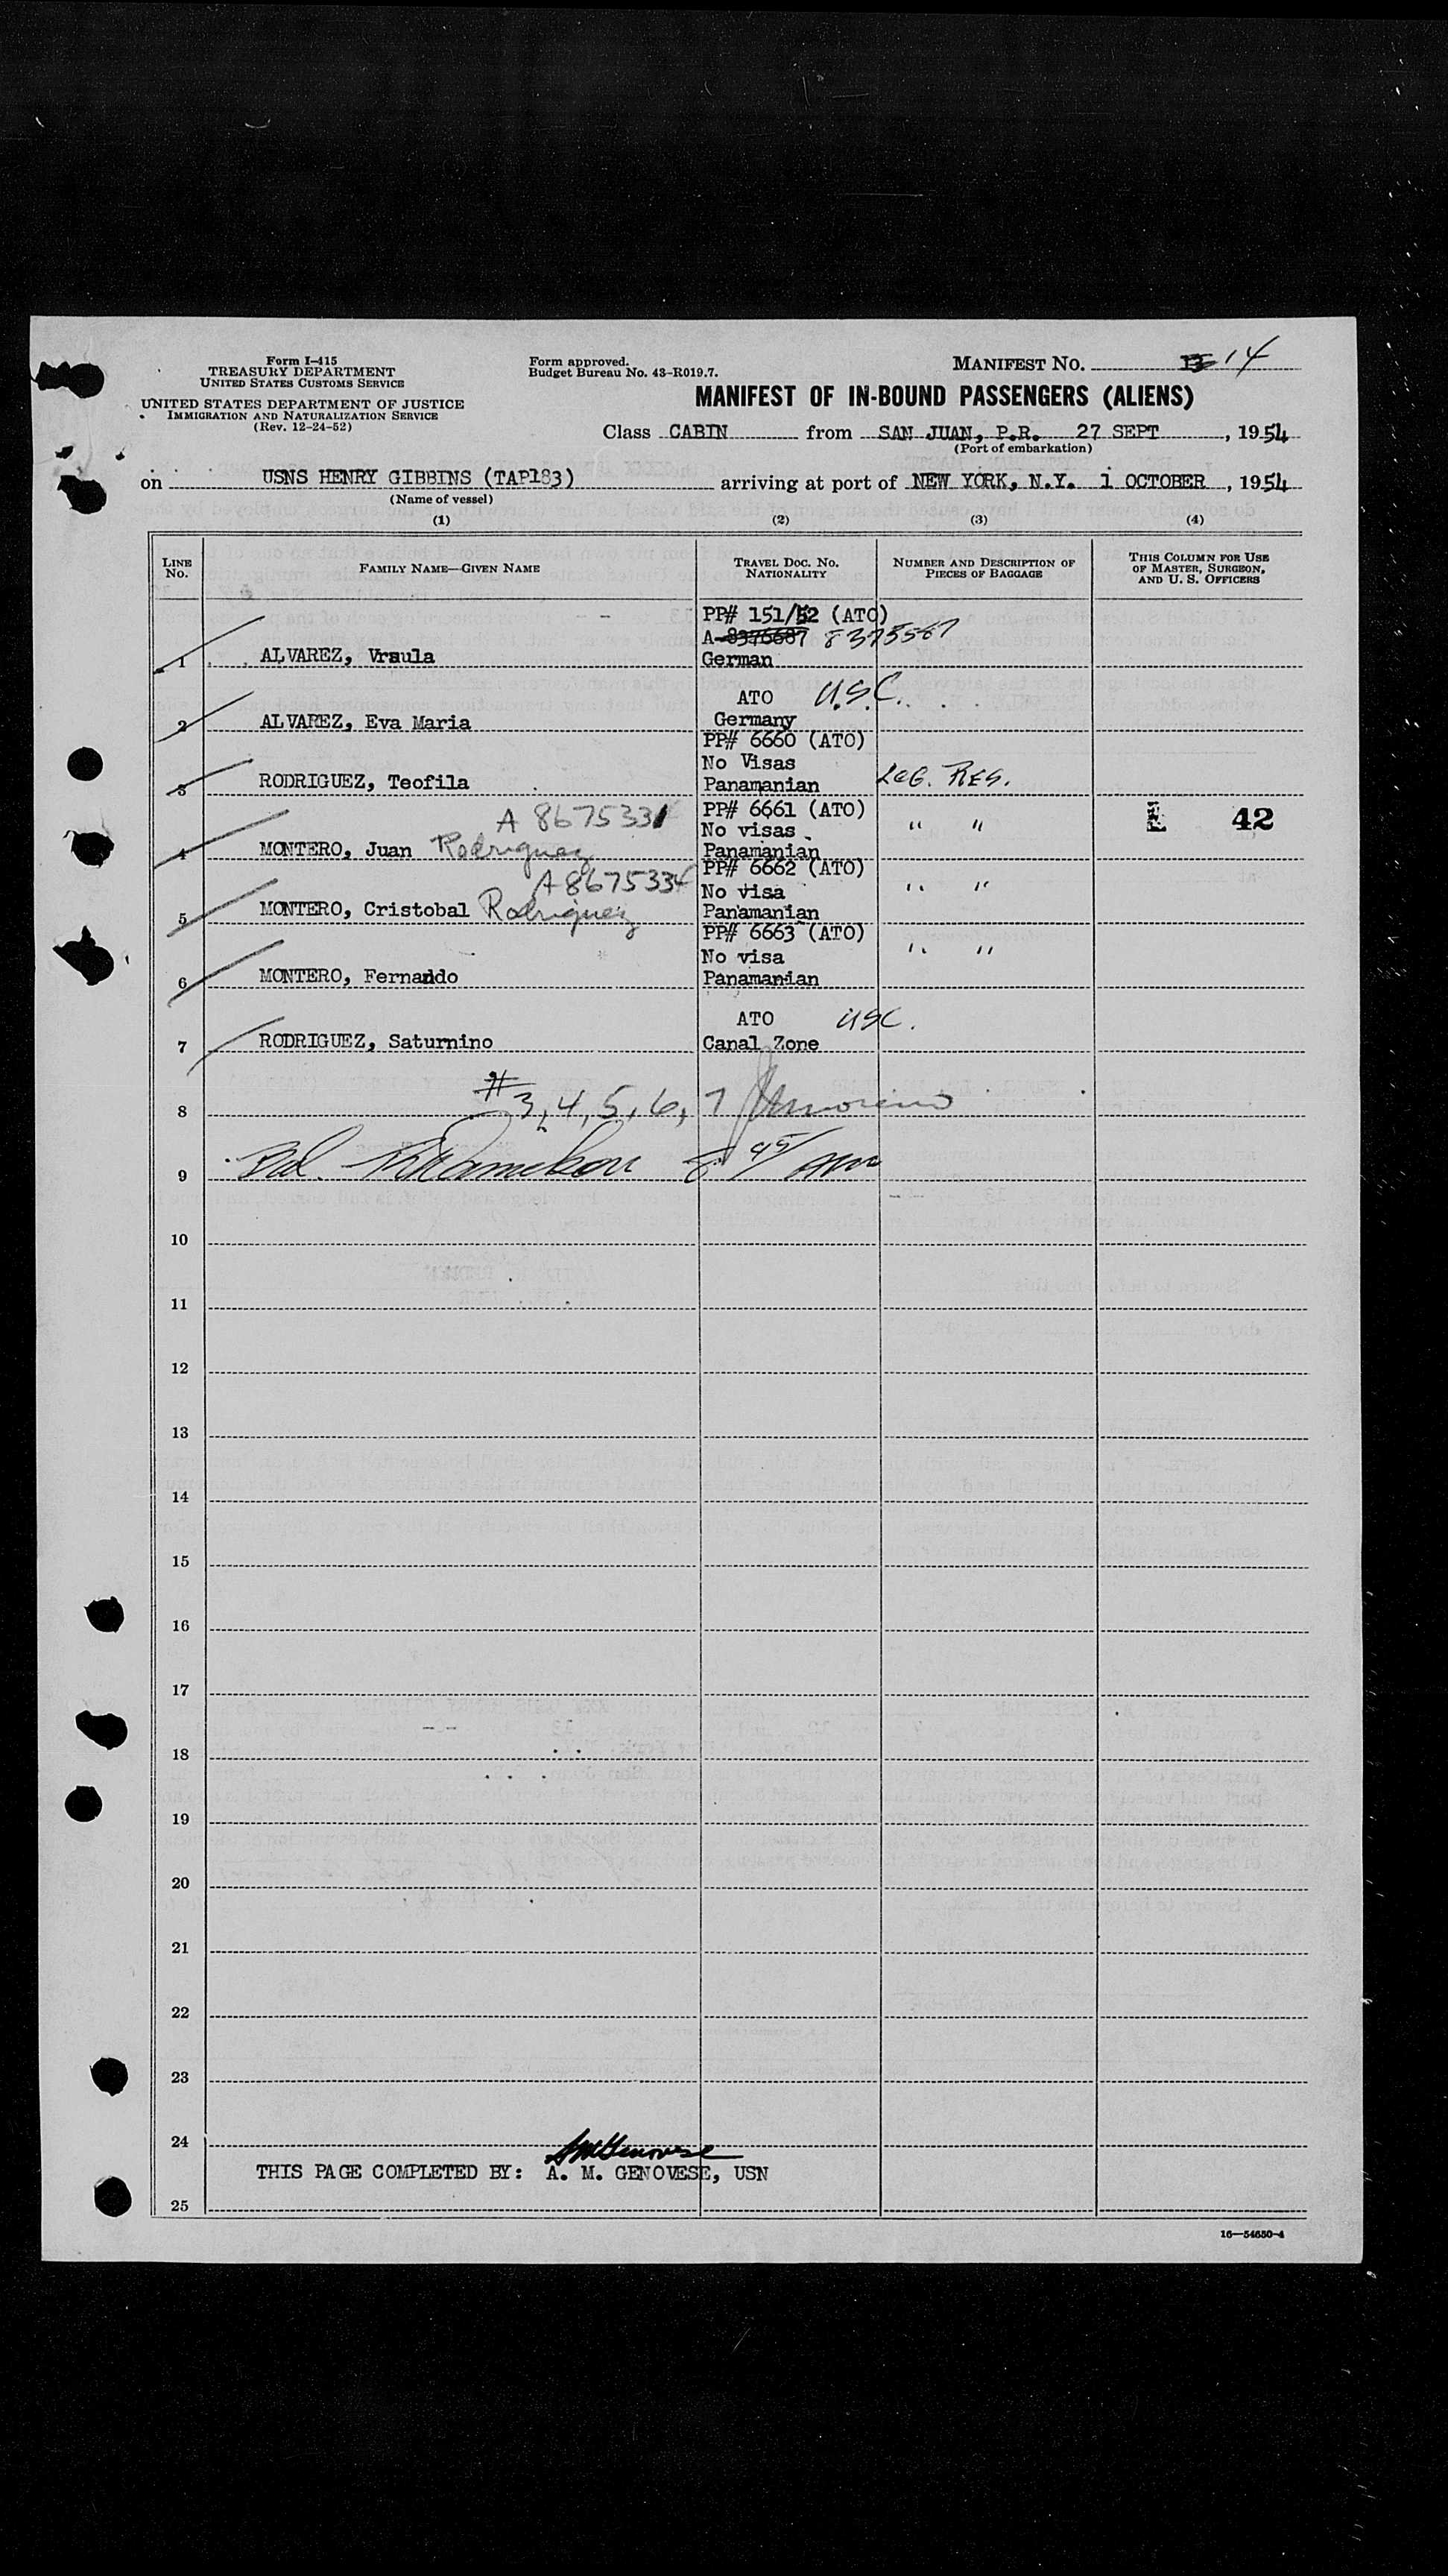 Form I-415
TREASURY DEPARTMENT
UNITED STATES CUSTOMS SERVICE
UNITED STATES DEPARTMENT OF JUSTICE
IMMIGRATION AND NATURALIZATION SERVICE
(Rev. 12-24-52)
Form approved.
Budget Bureau No. 43-R019.7.
MANIFEST NO. 14
MANIFEST OF IN-BOUND PASSENGERS (ALIENS)
Class CABIN from SAN JUAN, P.R. 27 SEPT, 1954
(Port of embarkation)
on USNS HENRY GIBBINS (TAP183) arriving at port of NEW YORK, N.Y. 1 OCTOBER, 1954
(Name of vessel)
(1) (2) (3) (4)
LINE NO. FAMILY NAME—GIVEN NAME TRAVEL DOC. NO. NATIONALITY NUMBER AND DESCRIPTION OF PIECES OF BAGGAGE THIS COLUMN FOR USE OF MASTER, SURGEON, AND U. S. OFFICERS
PP# 151/52 (ATO)
A-8376687 8375567
1 ALVAREZ, Vrsula German
ATO U.S.C.
2 ALVAREZ, Eva Maria Germany
PP# 6660 (ATO)
No Visas
3 RODRIGUEZ, Teofila Panamanian Leg. Res.
A 8675331 PP# 6661 (ATO)
No visas " " L 42
4 MONTERO, Juan Rodriguez Panamanian
A8675334 PP# 6662 (ATO)
No visa " "
5 MONTERO, Cristobal Rodriguez Panamanian
PP# 6663 (ATO)
No visa " "
6 MONTERO, Fernando Panamanian
ATO USC.
7 RODRIGUEZ, Saturnino Canal Zone
8 # 3, 4, 5, 6, 7
9 Bal. 8 45/ AM
10
11
12
13
14
15
16
17
18
19
20
21
22
23
24
AMGenovese
THIS PAGE COMPLETED BY: A. M. GENOVESE, USN
25
16—54650-4